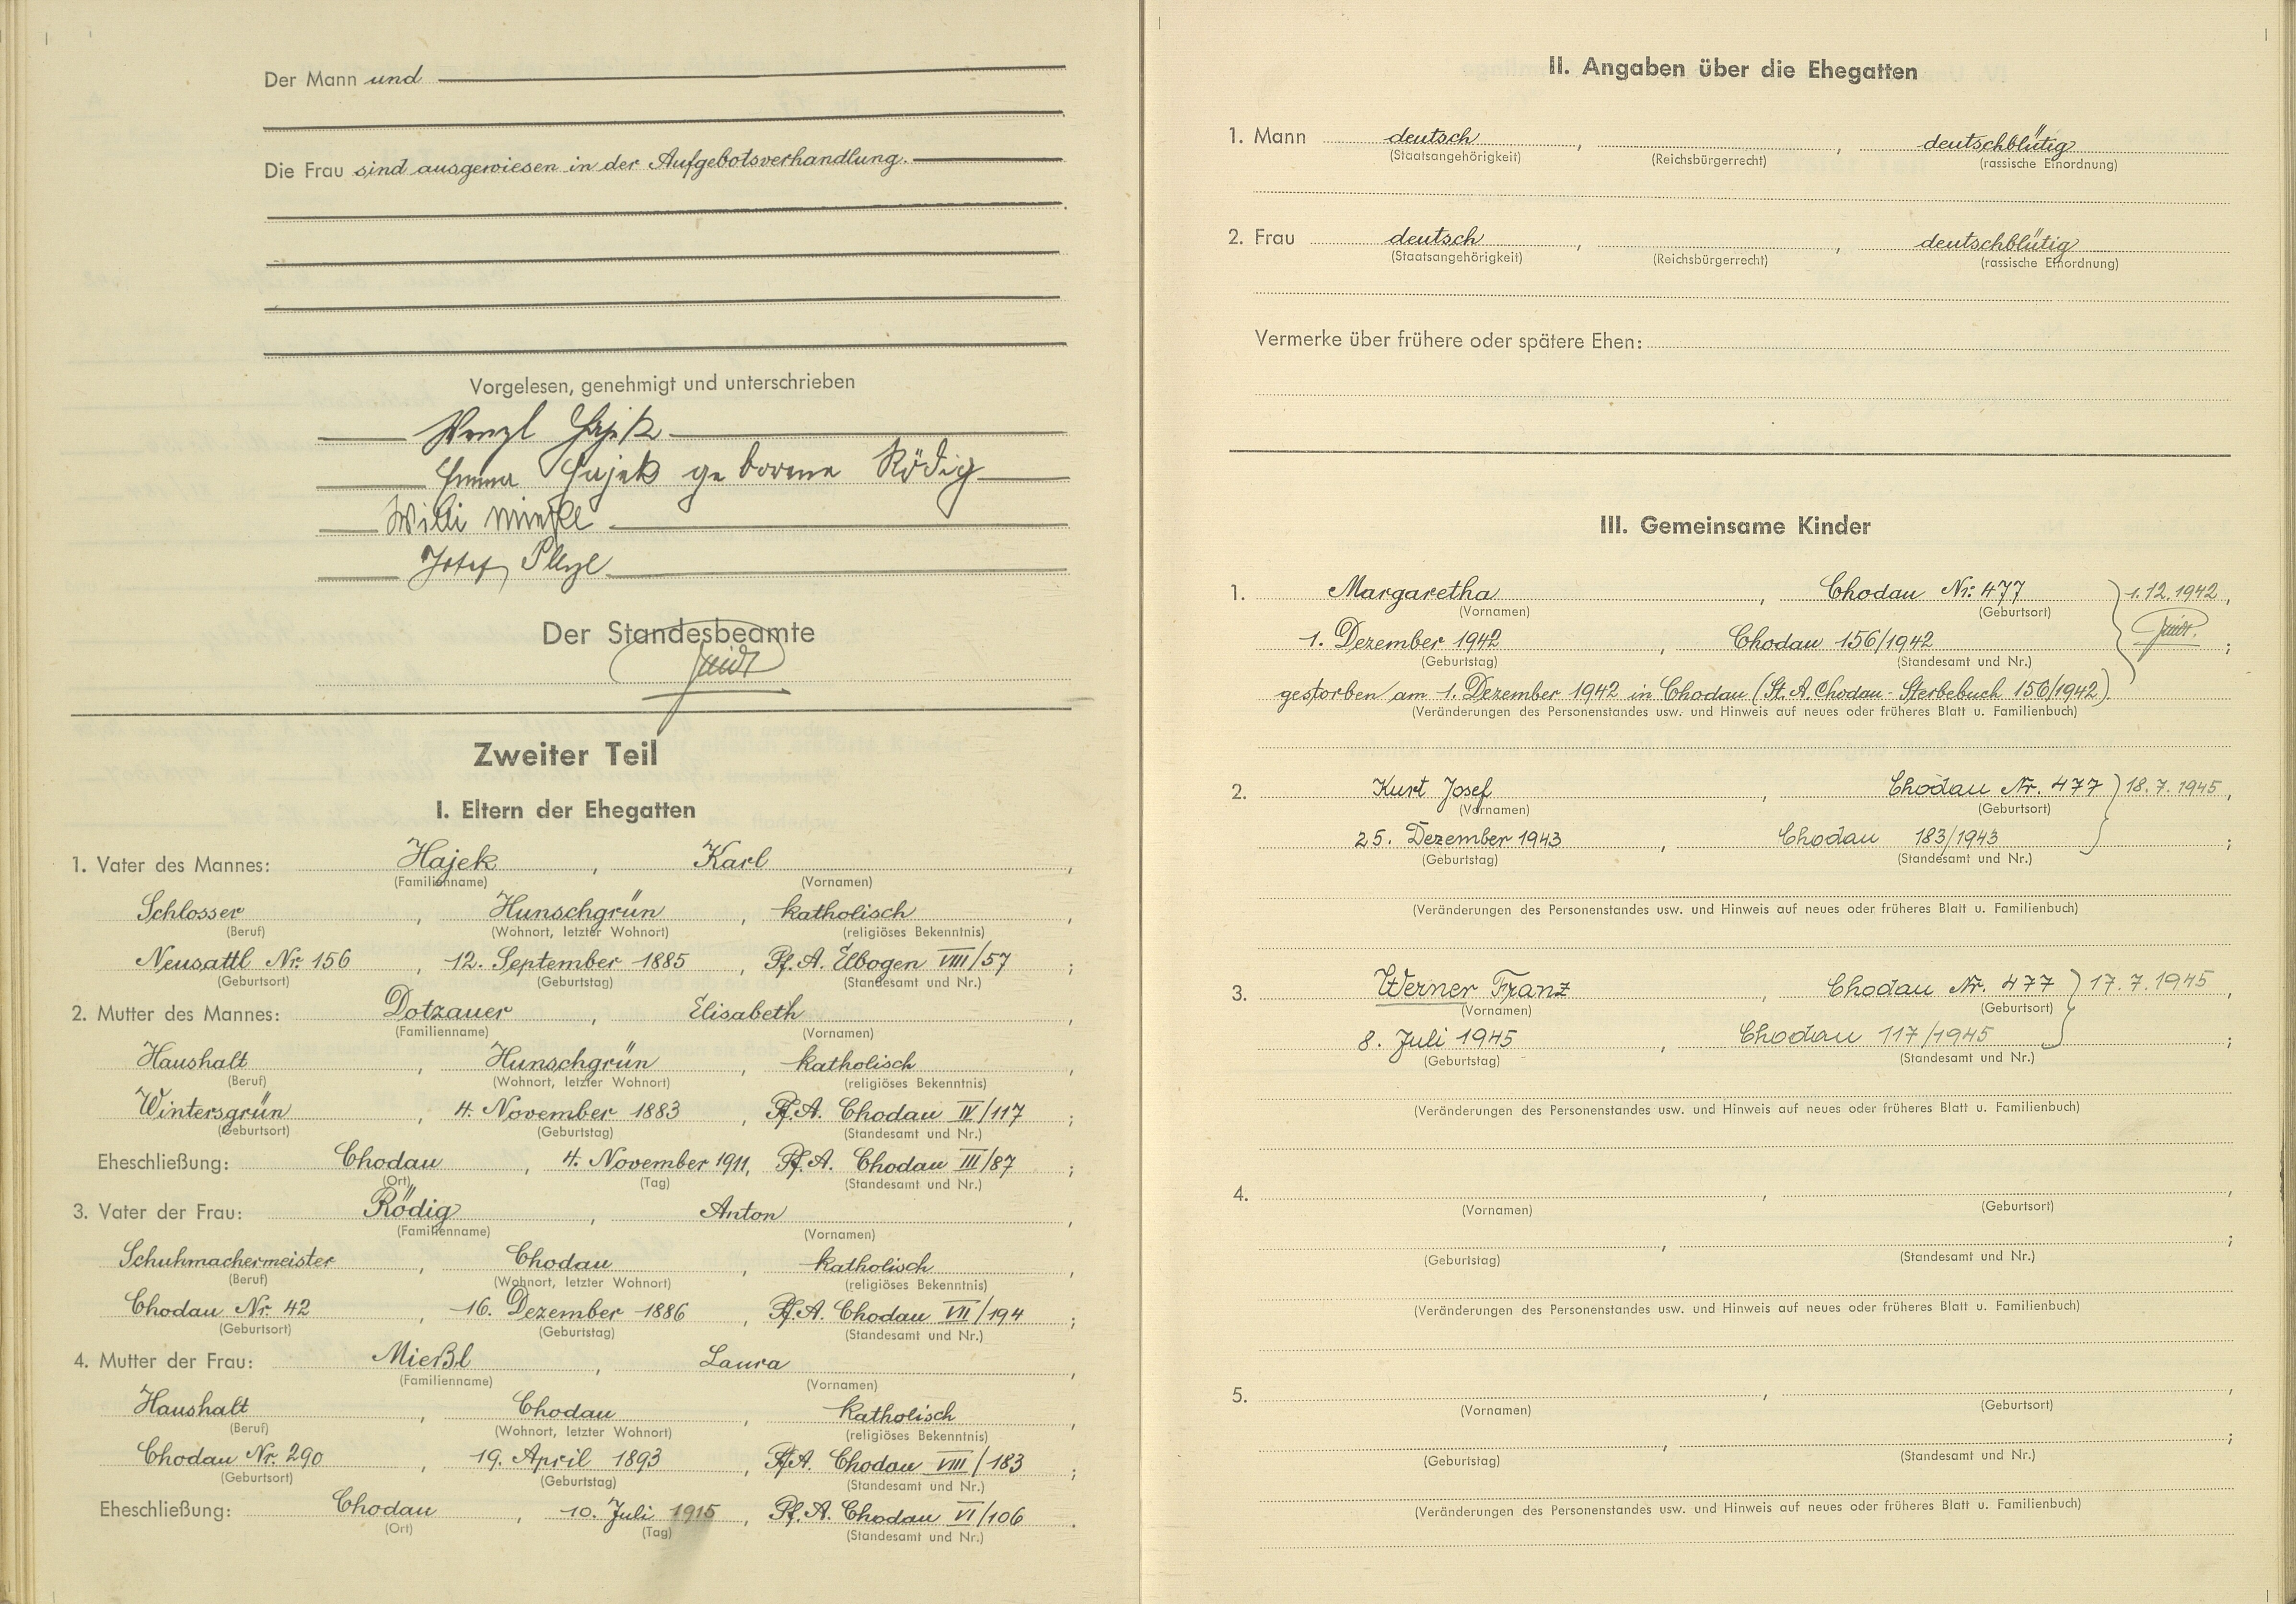 Der Mann und
Die Frau sind ausgewiesen in der Aufgebotsverhandlung.
Vorgelesen, genehmigt und unterschrieben
Wenzl Hajek
Emma Hajek geborene Rödig
Willi Mießl
Josef
Der Standesbeamte
Zweiter Teil
I. Eltern der Ehegatten
1. Vater des Mannes: Hajek, Karl,
(Familienname) (Vornamen)
Schlosser, Hunschgrün, katholisch,
(Beruf) (Wohnort, letzter Wohnort) (religiöses Bekenntnis)
Neusattl Nr. 156, 12. September 1885, Pf. A. Elbogen VIII/57;
(Geburtsort) (Geburtstag) (Standesamt und Nr.)
2. Mutter des Mannes: Dotzauer, Elisabeth,
(Familienname) (Vornamen)
Haushalt, Hunschgrün, katholisch,
(Beruf) (Wohnort, letzter Wohnort) (religiöses Bekenntnis)
Wintersgrün, 4. November 1883, Pf. A. Chodau IV/117;
(Geburtsort) (Geburtstag) (Standesamt und Nr.)
Eheschließung: Chodau, 4. November 1911, Pf. A. Chodau III/87;
(Ort) (Tag) (Standesamt und Nr.)
3. Vater der Frau: Rödig, Anton,
(Familienname) (Vornamen)
Schuhmachermeister, Chodau, katholisch,
(Beruf) (Wohnort, letzter Wohnort) (religiöses Bekenntnis)
Chodau Nr. 42, 16. Dezember 1886, Pf. A. Chodau VII/194;
(Geburtsort) (Geburtstag) (Standesamt und Nr.)
4. Mutter der Frau: Mießl, Laura,
(Familienname) (Vornamen)
Haushalt, Chodau, katholisch,
(Beruf) (Wohnort, letzter Wohnort) (religiöses Bekenntnis)
Chodau Nr. 290, 19. April 1893, Pf. A. Chodau VIII/183;
(Geburtsort) (Geburtstag) (Standesamt und Nr.)
Eheschließung: Chodau, 10. Juli 1915, Pf. A. Chodau VI/106.
(Ort) (Tag) (Standesamt und Nr.)
II. Angaben über die Ehegatten
1. Mann deutsch, , deutschblütig
(Staatsangehörigkeit) (Reichsbürgerrecht) (rassische Einordnung)
2. Frau deutsch, , deutschblütig
(Staatsangehörigkeit) (Reichsbürgerrecht) (rassische Einordnung)
Vermerke über frühere oder spätere Ehen:
III. Gemeinsame Kinder
1. Margaretha, Chodau Nr. 477 1.12.1942,
(Vornamen) (Geburtsort)
1. Dezember 1942, Chodau 156/1942;
(Geburtstag) (Standesamt und Nr.)
gestorben am 1. Dezember 1942 in Chodau (St. A. Chodau - Sterbebuch 156/1942).
(Veränderungen des Personenstandes usw. und Hinweis auf neues oder früheres Blatt u. Familienbuch)
2. Kurt Josef, Chodau Nr. 477 18.7.1945,
(Vornamen) (Geburtsort)
25. Dezember 1943, Chodau 183/1943;
(Geburtstag) (Standesamt und Nr.)
(Veränderungen des Personenstandes usw. und Hinweis auf neues oder früheres Blatt u. Familienbuch)
3. Werner Franz, Chodau Nr. 477 17.7.1945,
(Vornamen) (Geburtsort)
8. Juli 1945, Chodau 117/1945;
(Geburtstag) (Standesamt und Nr.)
(Veränderungen des Personenstandes usw. und Hinweis auf neues oder früheres Blatt u. Familienbuch)
4. , ,
(Vornamen) (Geburtsort)
, ;
(Geburtstag) (Standesamt und Nr.)
(Veränderungen des Personenstandes usw. und Hinweis auf neues oder früheres Blatt u. Familienbuch)
5. , ,
(Vornamen) (Geburtsort)
, ;
(Geburtstag) (Standesamt und Nr.)
(Veränderungen des Personenstandes usw. und Hinweis auf neues oder früheres Blatt u. Familienbuch)